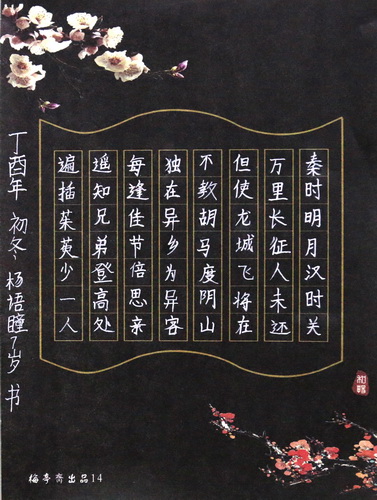 秦时明月汉时关
万里长征人未还
但使龙城飞将在
不教胡马度阴山
独在异乡为异客
每逢佳节倍思亲
遥知兄弟登高处
遍插茱萸少一人
丁酉年 初冬 杨培瞳7岁 书
梅亭斋出品14